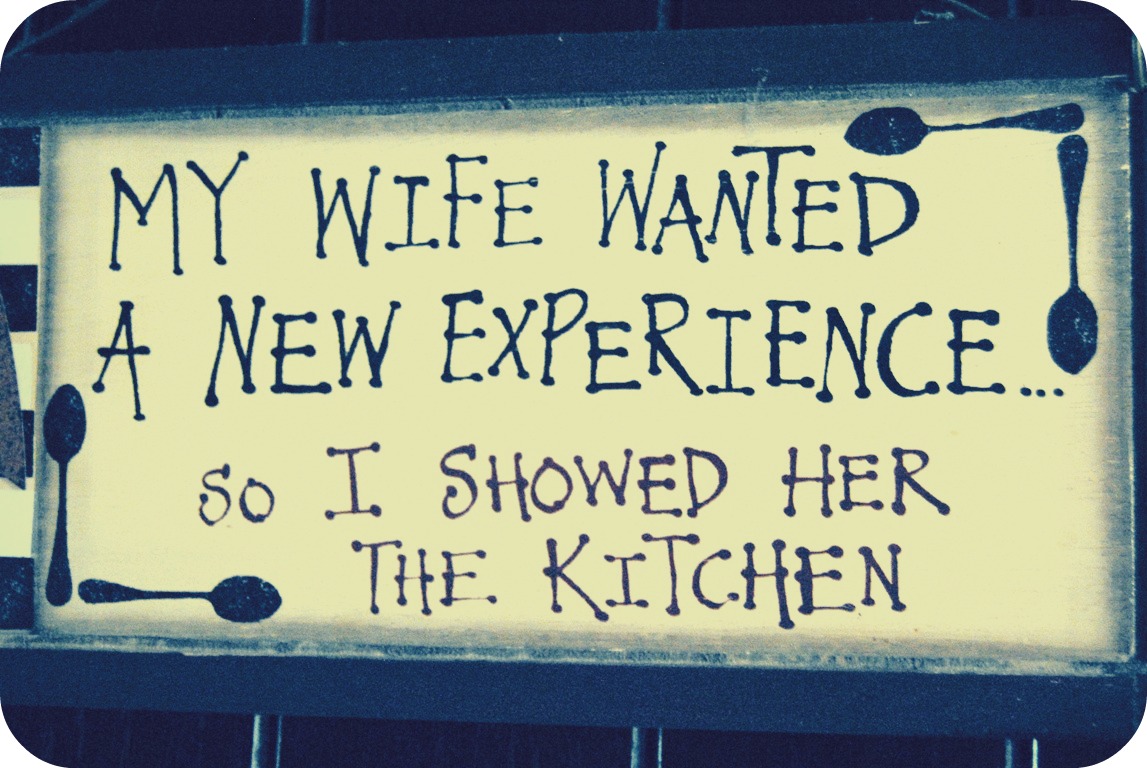 MY WIFE WANTED
A NEW EXPERIENCE...
SO I SHOWED HER
THE KITCHEN